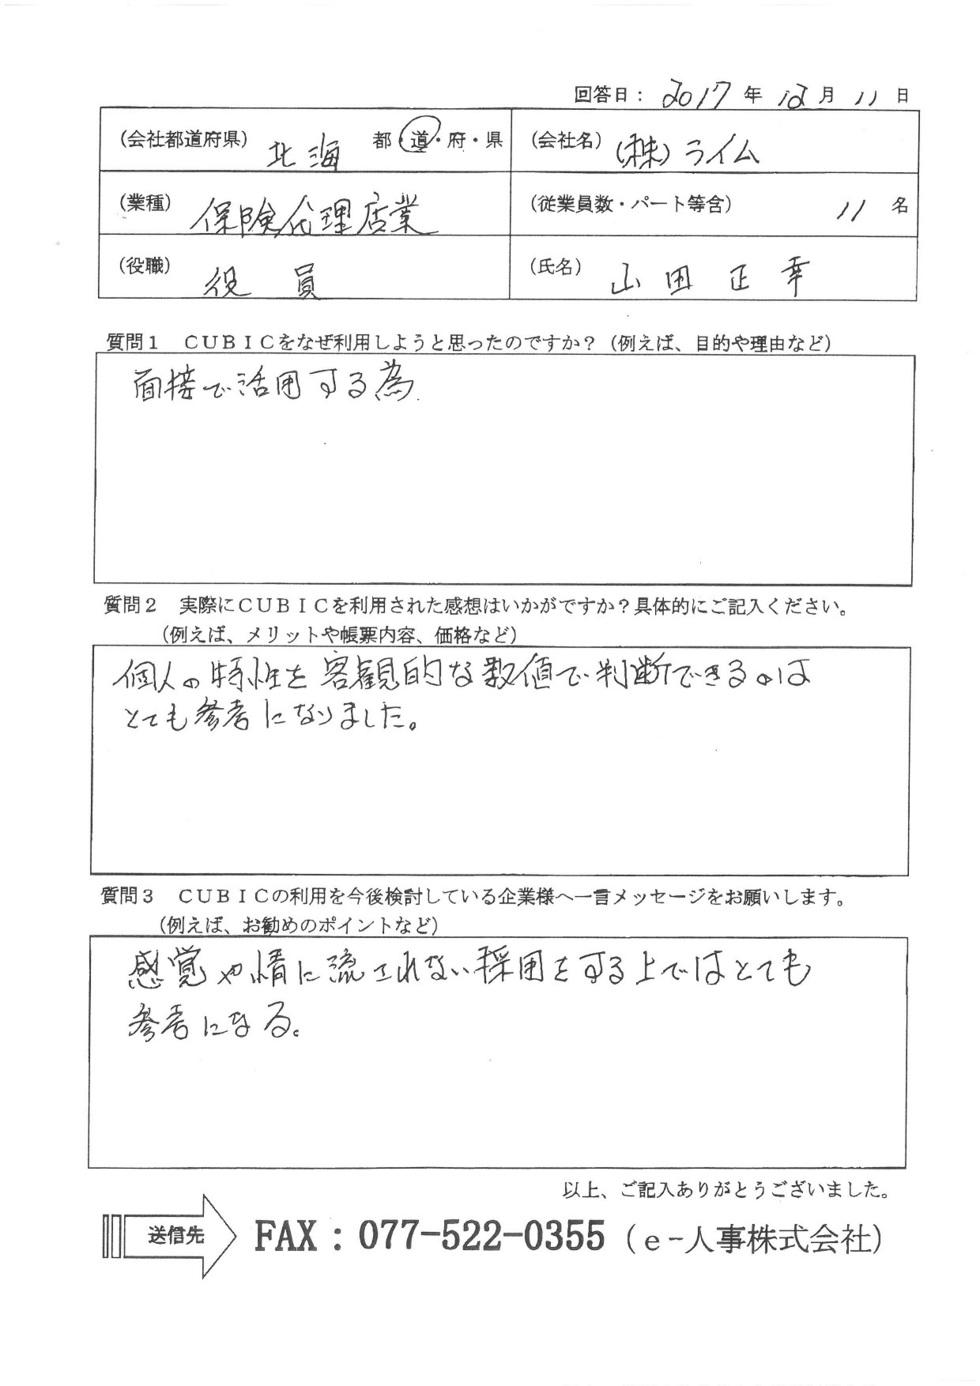 回答日： 2017 年 12 月 11 日
（会社都道府県） 北海 都・道・府・県 （会社名） （株）ライム
（業種） 保険代理店業 （従業員数・パート等含） 11 名
（役職） 役員 （氏名） 山田 正幸
質問１　ＣＵＢＩＣをなぜ利用しようと思ったのですか？（例えば、目的や理由など）
面接で活用する為
質問２　実際にＣＵＢＩＣを利用された感想はいかがですか？具体的にご記入ください。
（例えば、メリットや帳票内容、価格など）
個人の特性を客観的な数値で判断できるのは
とても参考になりました。
質問３　ＣＵＢＩＣの利用を今後検討している企業様へ一言メッセージをお願いします。
（例えば、お勧めのポイントなど）
感覚や情に流されない採用をする上ではとても
参考になる。
以上、ご記入ありがとうございました。
送信先 FAX：077-522-0355（e-人事株式会社）